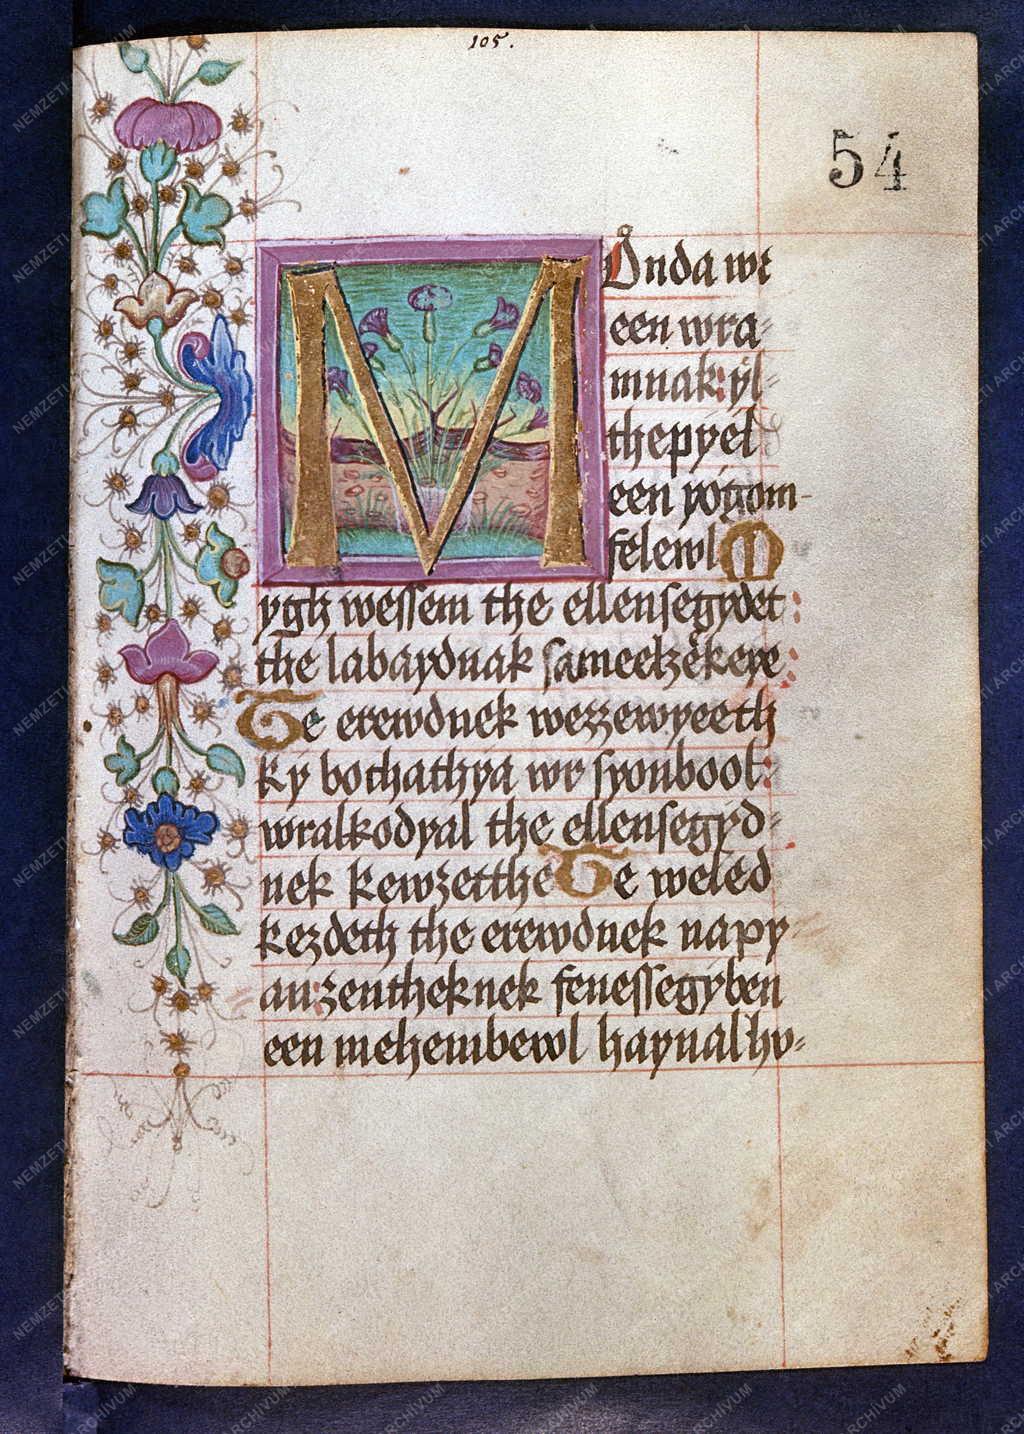 105.
54
MOnda wr
een wra⸗
mnak: yl⸗
thepyel
een yogom-
felewl M
ygh wessem the ellensegydet:
the labaydnak sameelzekeye:
Te erewdnek wezzewyeeth
ky bochathya wr syonbool:
wralkodyal the ellensegyd⸗
nek kewzetthe Te weled
kezdeth the erewdnek napy
auzentheknek fenessegyben
een mehembewl haynalhv⸗
NEMZETI ARCHIVUM